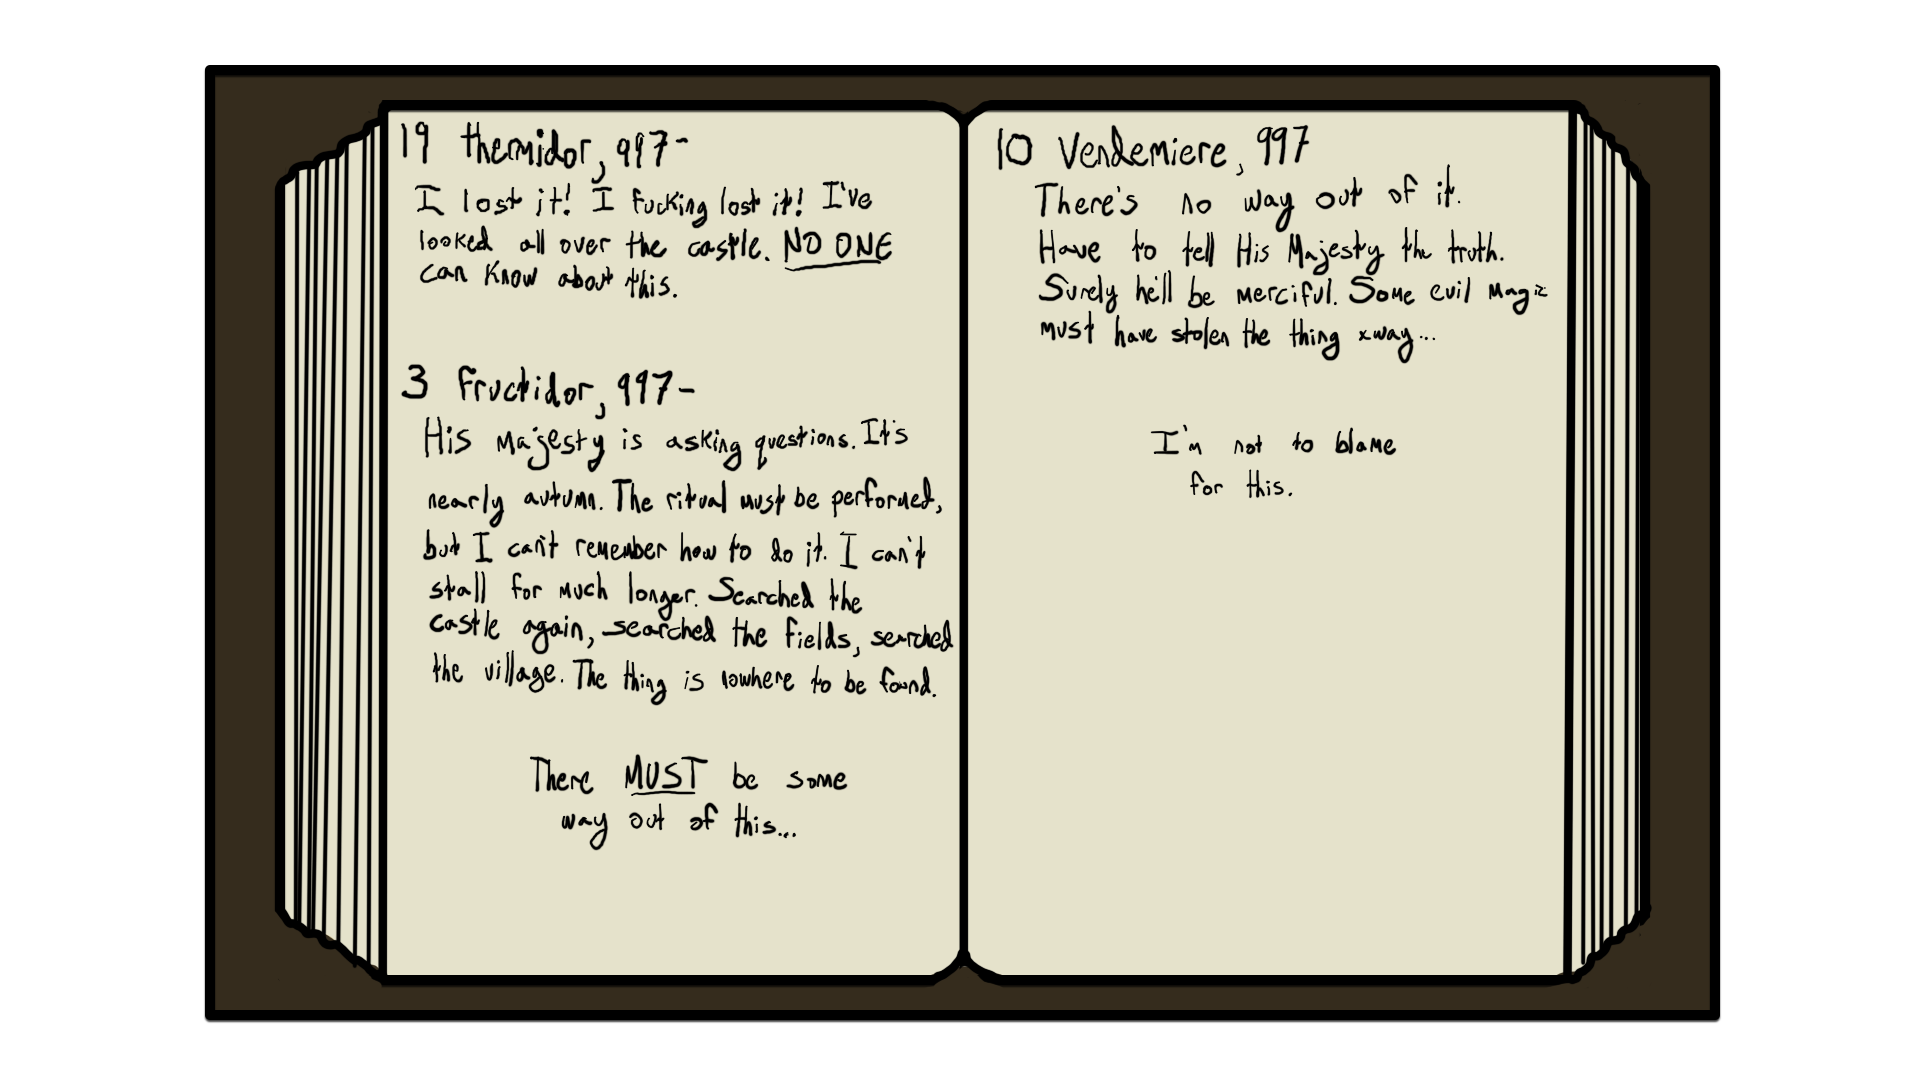 19 thermidor, 997-
I lost it! I fucking lost it! I've
looked all over the castle. NO ONE
can know about this.
3 fructidor, 997-
His Majesty is asking questions. It's
nearly autumn. The ritual must be performed,
but I can't remember how to do it. I can't
stall for much longer. Searched the
castle again, searched the fields, searched
the village. The thing is nowhere to be found.
There MUST be some
way out of this...
10 Vendemiere, 997
There's no way out of it.
Have to tell His Majesty the truth.
Surely he'll be merciful. Some evil magic
must have stolen the thing away...
I'm not to blame
for this.